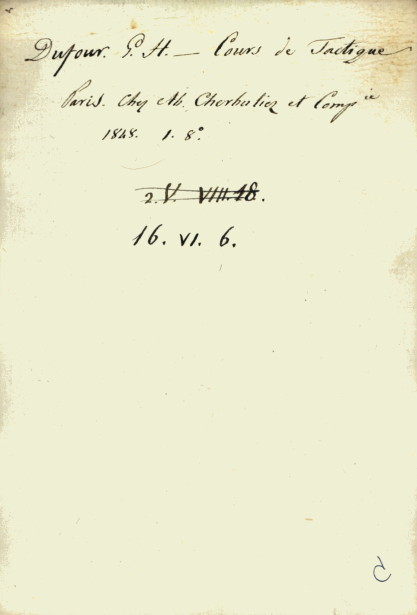 Dufour. G. H. — Cours de Tactique
Paris. Chez Ab. Cherbuliez et Comp.ie
1848. 1. 8°
2. V. VIII. 18.
16. VI. 6.
C